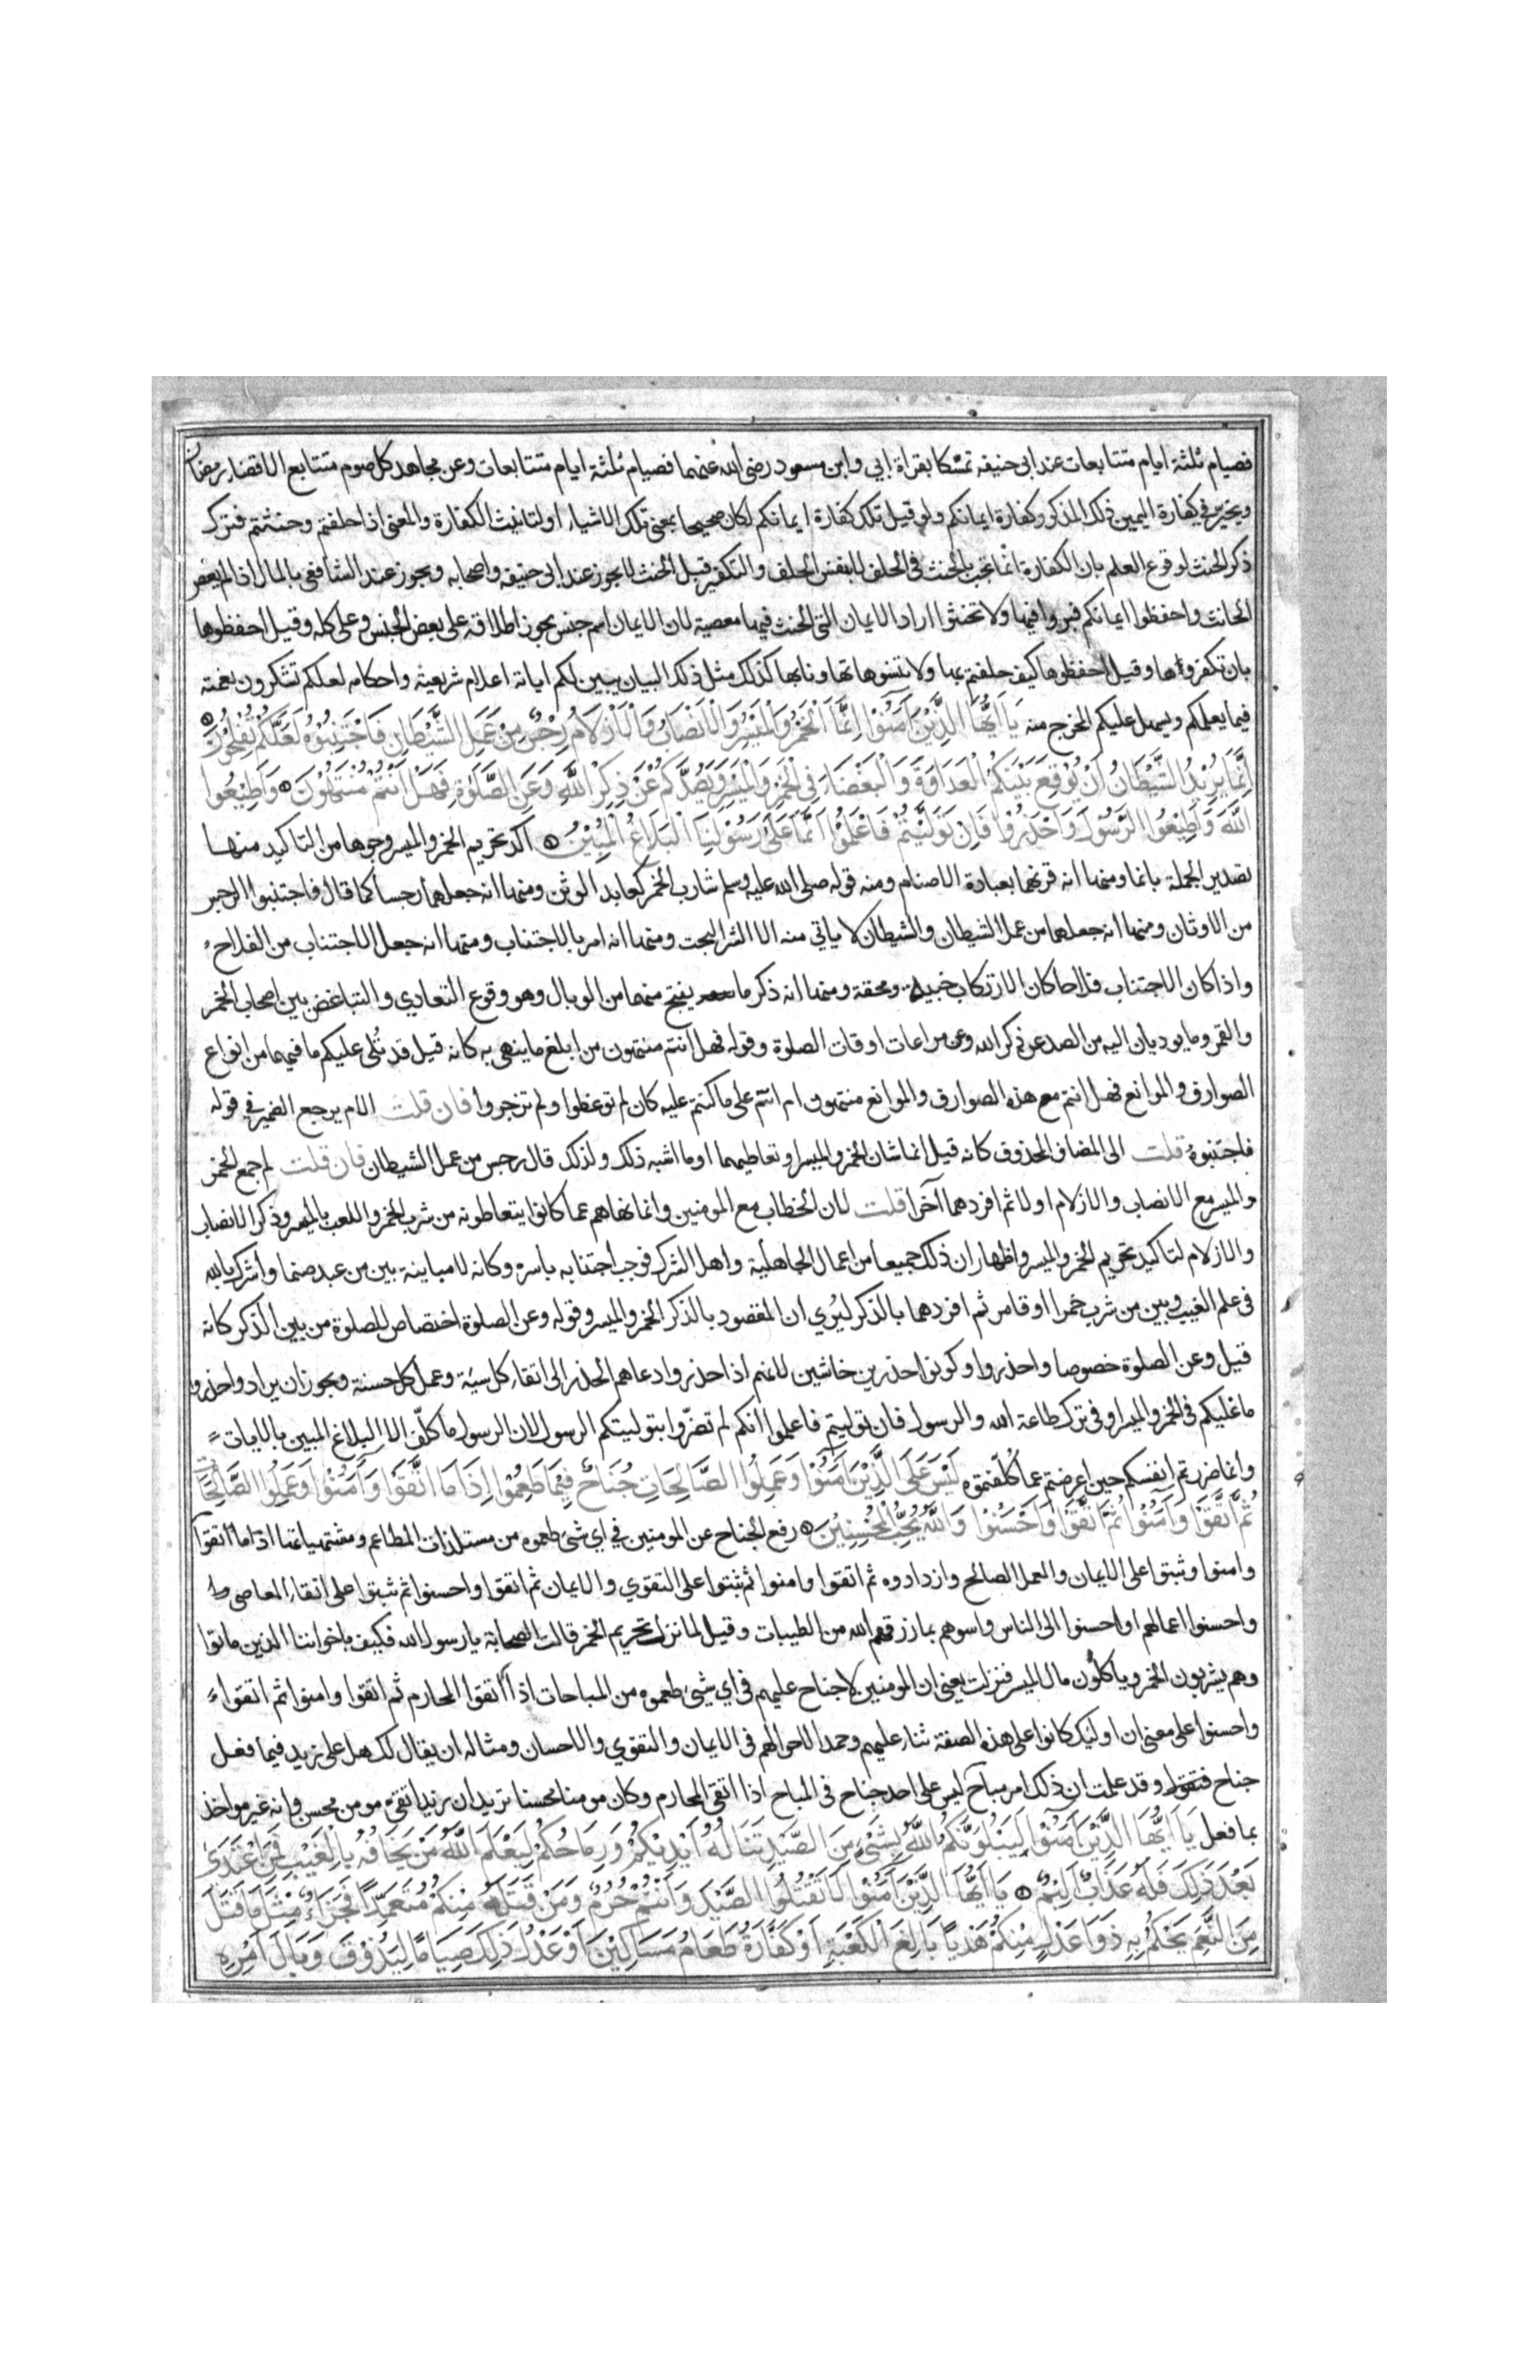 فصيام ثلثة ايام متتابعات عند ابى حنيفه تمسكا بقراة ابي وابن مسعود رضى الله عنهما فصيام ثلثة ايام متتابعات وعن مجاهد كل صوم متتابع الا قضاء رمضان
ويخير في كفارة اليمين ذلك المذكور كفارة ايمانكم ولو قيل تلك كفارة ايمانكم لكان صحيحا بمعنى تلك الاشياء او لتانيث الكفارة والمعنى اذا حلفتم وحنثتم فترك
ذكر الحنث لوقوع العلم بان الكفارة انما تجب بالحنث فى الحلف لا بنفس الحلف والتكفير قبل الحنث لا يجوز عند ابى حنيفه واصحابه ويجوز عند الشافعى بالمال اذا لم يعص
الحانث واحفظوا ايمانكم فبروا فيها ولا تحنثوا اراد الايمان التى الحنث فيها معصية لان الايمان اسم جنس يجوز اطلاقه على بعض الجنس وعلى كله وقيل احفظوها
بان تكفروها وقيل احفظوها كيف حلفتم بها ولا تنسوها تهاونا بها كذلك مثل ذلك البيان يبين لكم اياته اعلام شريعته واحكامه لعلكم تشكرون نعمته
فيما يعلمكم ويسهل عليكم المخرج منه يَا اَيُّهَا الَّذِيْنَ آمَنُوْا اِنَّمَا الْخَمْرُ وَالْمَيْسِرُ وَالْاَنْصَابُ وَالْاَزْلَامُ رِجْسٌ مِنْ عَمَلِ الشَّيْطَانِ فَاجْتَنِبُوْهُ لَعَلَّكُمْ تُفْلِحُوْنَ
اِنَّمَا يُرِيْدُ الشَّيْطَانُ اَنْ يُوْقِعَ بَيْنَكُمُ الْعَدَاوَةَ وَالْبَغْضَاءَ فِى الْخَمْرِ وَالْمَيْسِرِ وَيَصُدَّكُمْ عَنْ ذِكْرِ اللّٰهِ وَعَنِ الصَّلٰوةِ فَهَلْ اَنْتُمْ مُنْتَهُوْنَ وَاَطِيْعُوا
اللّٰهَ وَاَطِيْعُوا الرَّسُوْلَ وَاحْذَرُوْا فَاِنْ تَوَلَّيْتُمْ فَاعْلَمُوْا اَنَّمَا عَلٰى رَسُوْلِنَا الْبَلَاغُ الْمُبِيْنُ اكد تحريم الخمر والميسر وجوها من التاكيد منها
تصدير الجملة بانما ومنها انه قرنهما بعبادة الاصنام ومنه قوله صلى الله عليه وسلم شارب الخمر كعابد الوثن ومنها انه جعلهما رجسا كما قال فاجتنبوا الرجس
من الاوثان ومنها انه جعلهما من عمل الشيطان والشيطان لا ياتي منه الا الشر البحت ومنها انه امر بالاجتناب ومنها انه جعل الاجتناب من الفلاح
واذا كان الاجتناب فلاحا كان الارتكاب خيبة ومحقة ومنها انه ذكر ما ينتج منهما من الوبال وهو وقوع التعادي والتباغض بين اصحاب الخمر
والقمر وما يوديان اليه من الصد عن ذكر الله وعن مراعات اوقات الصلوة وقوله فهل انتم منتهون من ابلغ ما ينهى به كانه قيل قد تُلى عليكم ما فيهما من انواع
الصوارف والموانع فهل انتم مع هذه الصوارف والموانع منتهون ام انتم على ما كنتم عليه كان لم توعظوا ولم تزجروا فان قلت الام يرجع الضمير في قوله
فاجتنبوه قلت الى المضاف المحذوف كانه قيل انما شان الخمر والميسر او تعاطيهما او ما اشبه ذلك ولذلك قال رجس من عمل الشيطان فان قلت لم جمع الخمر
والميسر مع الانصاب والازلام اولا ثم افردهما آخرا قلت لان الخطاب مع المومنين وانما نهاهم عما كانوا يتعاطونه من شرب الخمر واللعب بالميسر وذكر الانصاب
والازلام لتاكيد تحريم الخمر والميسر واظهار ان ذلك جميعا من اعمال الجاهلية واهل الشرك فوجب اجتنابه باسره وكانه لا مباينة بين من عبد صنما واشرك بالله
فى علم الغيب وبين من شرب خمرا او قامر ثم افردهما بالذكر ليُري ان المقصود بالذكر الخمر والميسر وقوله وعن الصلوة اختصاص للصلوة من بين الذكر كانه
قيل وعن الصلوة خصوصا واحذروا وكونوا حذرين خاشين لانهم اذا حذروا دعاهم الحذر الى اتقاء كل سيئة وعمل كل حسنة ويجوز ان يراد واحذروا
ما عليكم فى الخمر والميسر او فى ترك طاعة الله والرسول فان توليتم فاعلموا انكم لم تضرّوا بتوليتكم الرسول لان الرسول ما كلّف الا البلاغ المبين بالايات
وانما ضررتم انفسكم حين اعرضتم عما كُلّفتموه لَيْسَ عَلَى الَّذِيْنَ آمَنُوْا وَعَمِلُوا الصَّالِحَاتِ جُنَاحٌ فِيْمَا طَعِمُوْا اِذَا مَا اتَّقَوْا وَآمَنُوْا وَعَمِلُوا الصَّالِحَاتِ
ثُمَّ اتَّقَوْا وَآمَنُوْا ثُمَّ اتَّقَوْا وَاَحْسَنُوْا وَاللّٰهُ يُحِبُّ الْمُحْسِنِيْنَ رفع الجناح عن المومنين في اي شئ طعموه من مستلذات المطاعم ومشتهياتها اذا ما اتقوا
وامنوا وثبتوا على الايمان والعمل الصالح وازدادوه ثم اتقوا وامنوا ثم ثبتوا على التقوي والايمان ثم اتقوا واحسنوا ثم ثبتوا على اتقاء المعاصى
واحسنوا اعمالهم او احسنوا الى الناس واسوهم بما رزقهم الله من الطيبات وقيل لما نزل تحريم الخمر قالت الصحابة يا رسول الله فكيف باخواننا الذين ماتوا
وهم يشربون الخمر وياكلون مال الميسر فنزلت يعنى ان المومنين لا جناح عليهم فى اي شيئ طعموه من المباحات اذا اتقوا المحارم ثم اتقوا وامنوا ثم اتقوا
واحسنوا على معنى ان اولئك كانوا على هذه الصفة ثناء عليهم وحمدا لاحوالهم فى الايمان والتقوي والاحسان ومثاله ان يقال لك هل على زيد فيما فعل
جناح فتقول وقد علمت ان ذلك امر مباح ليس على احد جناح فى المباح اذا اتقى المحارم وكان مومنا محسنا تريد ان زيدا تقىّ مومن محسن وانه غير مواخذ
بما فعل يَا اَيُّهَا الَّذِيْنَ آمَنُوْا لَيَبْلُوَنَّكُمُ اللّٰهُ بِشَىْءٍ مِنَ الصَّيْدِ تَنَالُهُ اَيْدِيْكُمْ وَرِمَاحُكُمْ لِيَعْلَمَ اللّٰهُ مَنْ يَخَافُهُ بِالْغَيْبِ فَمَنِ اعْتَدٰى
بَعْدَ ذٰلِكَ فَلَهُ عَذَابٌ اَلِيْمٌ يَا اَيُّهَا الَّذِيْنَ آمَنُوْا لَا تَقْتُلُوا الصَّيْدَ وَاَنْتُمْ حُرُمٌ وَمَنْ قَتَلَهُ مِنْكُمْ مُتَعَمِّدًا فَجَزَاءٌ مِثْلُ مَا قَتَلَ
مِنَ النَّعَمِ يَحْكُمُ بِهِ ذَوَا عَدْلٍ مِنْكُمْ هَدْيًا بَالِغَ الْكَعْبَةِ اَوْ كَفَّارَةٌ طَعَامُ مَسَاكِيْنَ اَوْ عَدْلُ ذٰلِكَ صِيَامًا لِيَذُوْقَ وَبَالَ اَمْرِهِ